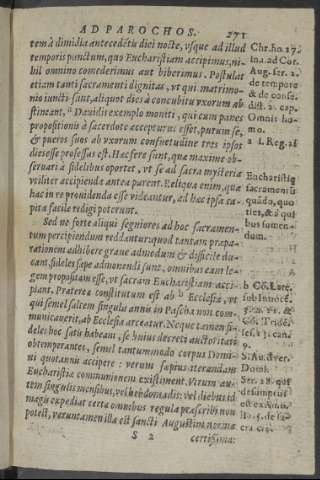 AD PAROCHOS. 271
tem à dimidia antecedētis diei nocte, vsque ad illud
temporis punctum, quo Eucharistiam accipimus, ni-
hil omnino comederimus aut biberimus. Postulat
etiam tanti sacramenti dignitas, vt qui matrimo-
nio iuncti sunt, aliquot dies à concubitu vxorum ab
stineant, Dauidis exemplo moniti, qui cum panes
propositionis à sacerdote accepturus esset, purum se,
& pueros suos ab vxorum consuetudine tres ipsos
dies esse professus est. Hæc ferè sunt, quæ maximè ob-
seruari à fidelibus oportet, vt se ad sacra mysteria
vtiliter accipienda antea parent. Reliqua enim, quæ
hac in re prouidenda esse videantur, ad hæc ipsa ca-
pita facilè redigi poterunt.
Sed ne forte aliqui segniores ad hoc sacramen-
tum percipiendum reddantur, quod tantam præpa-
rationem adhibere graue admodum & difficile du-
cant, fideles sæpe admonendi sunt, omnibus eam le-
gem propositam esse, vt sacram Eucharistiam acci-
piant. Præterea constitutum est ab Ecclesia, vt
qui semel saltem singulis annis in Pascha non com-
municauerit, ab Ecclesia arceatur. Neque tamen fi-
deles hoc satis habeant, se huius decreti auctoritati
obtemperantes, semel tantummodo corpus Domi-
ni quotannis accipere: verum sæpius iterandam
Eucharistiæ communionem existiment. Vtrum au-
tem singulis mensibus, vel hebdomadis: vel diebus id
magis expediat certa omnibus regula præscribi non
potest, veruntamen illa est sancti Augustini norma
S 2 certissima:
Chr. ho. 17.
in a. ad Cor.
Aug. ser. 2.
de tempore
& de conse.
dist. 2. cap.
Omnis ho-
mo.
a 1. Reg. 21
Eucharistię
sacramenti
quādo, quo
ties, & à qui
bus sumen-
dum.
b Cō. Late.
sub Innocē.
Cō. Tridē.
9.
S. Au. ver.
Dom.
Ser. 28. qui
desumptus
est